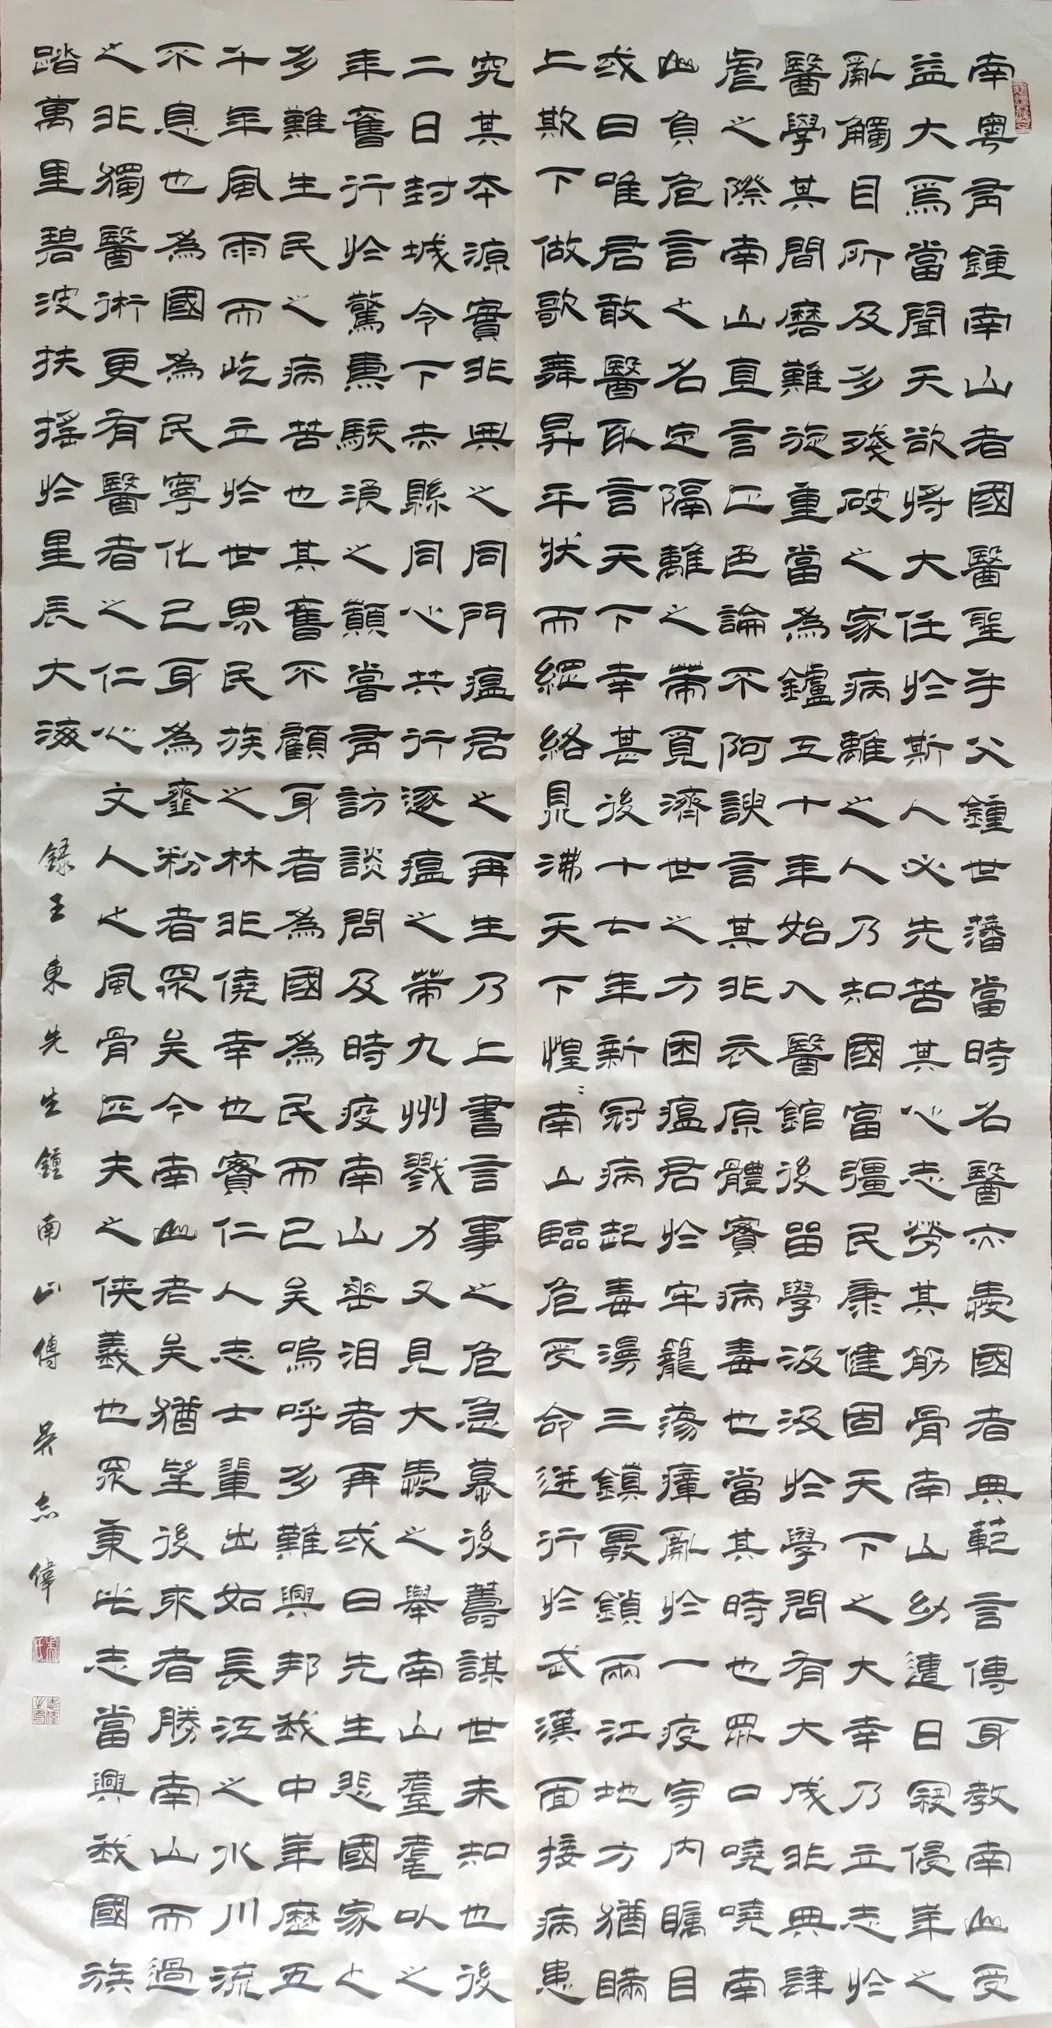 南粤君鍾南山者國醫聖手父鍾世藩當時名醫亦愛國者典範言傳身教南山受
益大焉當聞天欲將大任於斯人必先苦其心志勞其筋骨南山幼遭日寇侵華之
亂觸目所及多殘破之家病離之人乃知國富彊民康健固天下之大幸乃立志於
醫學其間磨難旋重當為鑪工十年始入醫館後留學汲汲於學問有大成非典肆
虐之際南山直言正色論不阿諛言其非衣原體實病毒也當其時也眾口嘵嘵南
山負危言之名定隔離之帶覓濟世之方困瘟君於牢籠蕩瘴亂於一疫宇內矚目
或曰唯君敢醫敢言天下幸甚後十七年新冠病起毒漫三鎮霧鎖兩江地方猶瞞
上欺下做歌舞昇平狀而網絡見沸天下惶惶南山臨危受命逆行於武漢面接病患
究其本源實非典之同門瘟君之再生乃上書言事之危急幕後籌謀世未知也後
二日封城令下赤縣同心共行逐瘟之帶九州戮力又見大愛之舉南山耄耋以之
年奮行於驚熏駭浪之顛嘗君訪談問及時疫南山垂泪者再或曰先生悲國家之
多難生民之病苦也其奮不顧身者為國為民而已矣嗚呼多難興邦我中華歷五
千年風雨而屹立於世界民族之林非僥幸也實仁人志士輩出如長江之水川流
不息也為國為民寧化己身為齏粉者眾矣今南山老矣猶望後來者勝南山而過
之非獨醫術更有醫者之仁心文人之風骨匹夫之俠義也眾秉此志當興我國族
踏萬里碧波扶搖於星辰大海
錄王東先生鍾南山傳 吳志偉